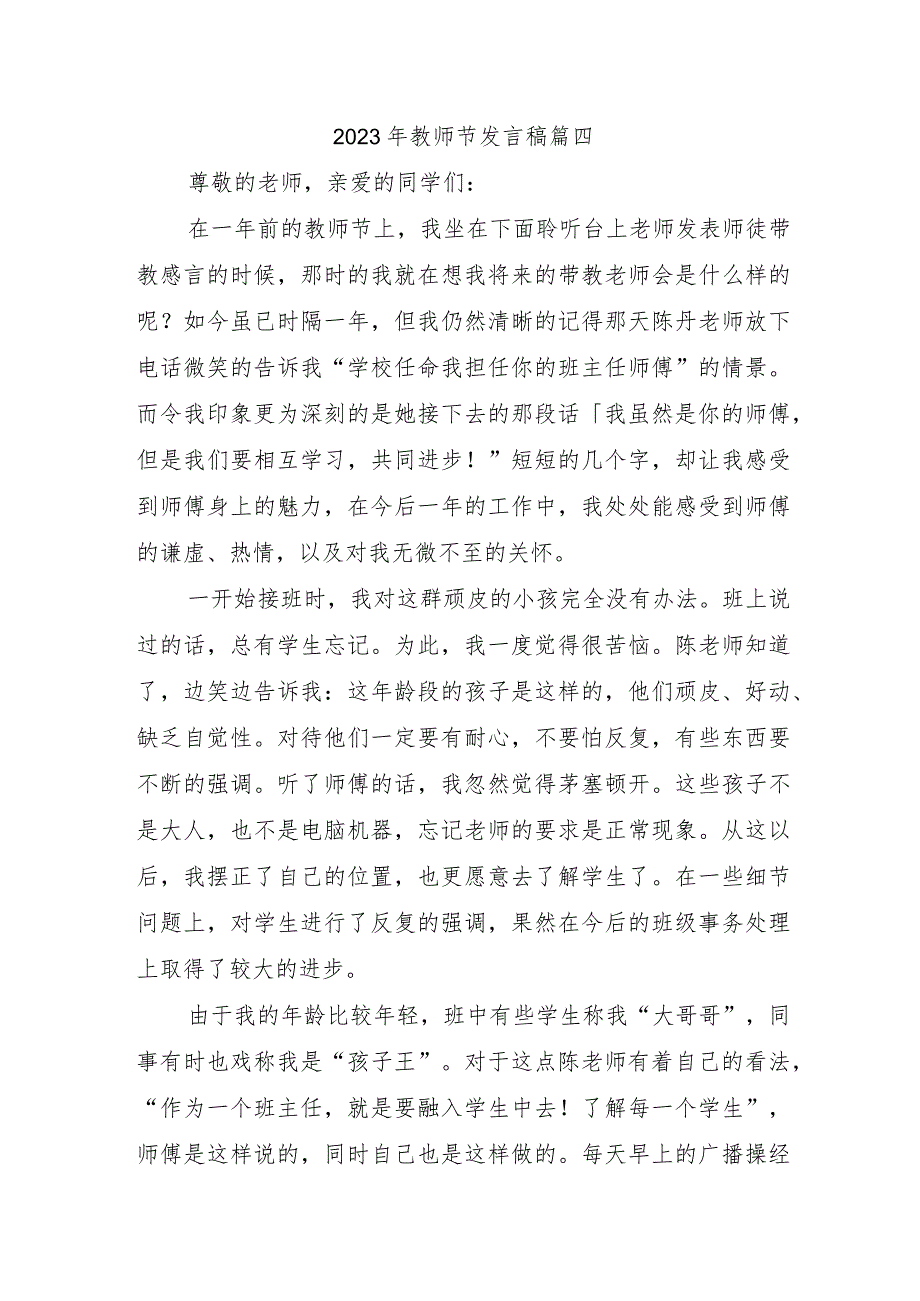 2023年教师节发言稿篇四
尊敬的老师，亲爱的同学们：
在一年前的教师节上，我坐在下面聆听台上老师发表师徒带
教感言的时候，那时的我就在想我将来的带教老师会是什么样的
呢？如今虽已时隔一年，但我仍然清晰的记得那天陈丹老师放下
电话微笑的告诉我“学校任命我担任你的班主任师傅”的情景。
而令我印象更为深刻的是她接下去的那段话「我虽然是你的师傅，
但是我们要相互学习，共同进步！”短短的几个字，却让我感受
到师傅身上的魅力，在今后一年的工作中，我处处能感受到师傅
的谦虚、热情，以及对我无微不至的关怀。
一开始接班时，我对这群顽皮的小孩完全没有办法。班上说
过的话，总有学生忘记。为此，我一度觉得很苦恼。陈老师知道
了，边笑边告诉我：这年龄段的孩子是这样的，他们顽皮、好动、
缺乏自觉性。对待他们一定要有耐心，不要怕反复，有些东西要
不断的强调。听了师傅的话，我忽然觉得茅塞顿开。这些孩子不
是大人，也不是电脑机器，忘记老师的要求是正常现象。从这以
后，我摆正了自己的位置，也更愿意去了解学生了。在一些细节
问题上，对学生进行了反复的强调，果然在今后的班级事务处理
上取得了较大的进步。
由于我的年龄比较年轻，班中有些学生称我“大哥哥”，同
事有时也戏称我是“孩子王”。对于这点陈老师有着自己的看法，
“作为一个班主任，就是要融入学生中去！了解每一个学生”，
师傅是这样说的，同时自己也是这样做的。每天早上的广播操经